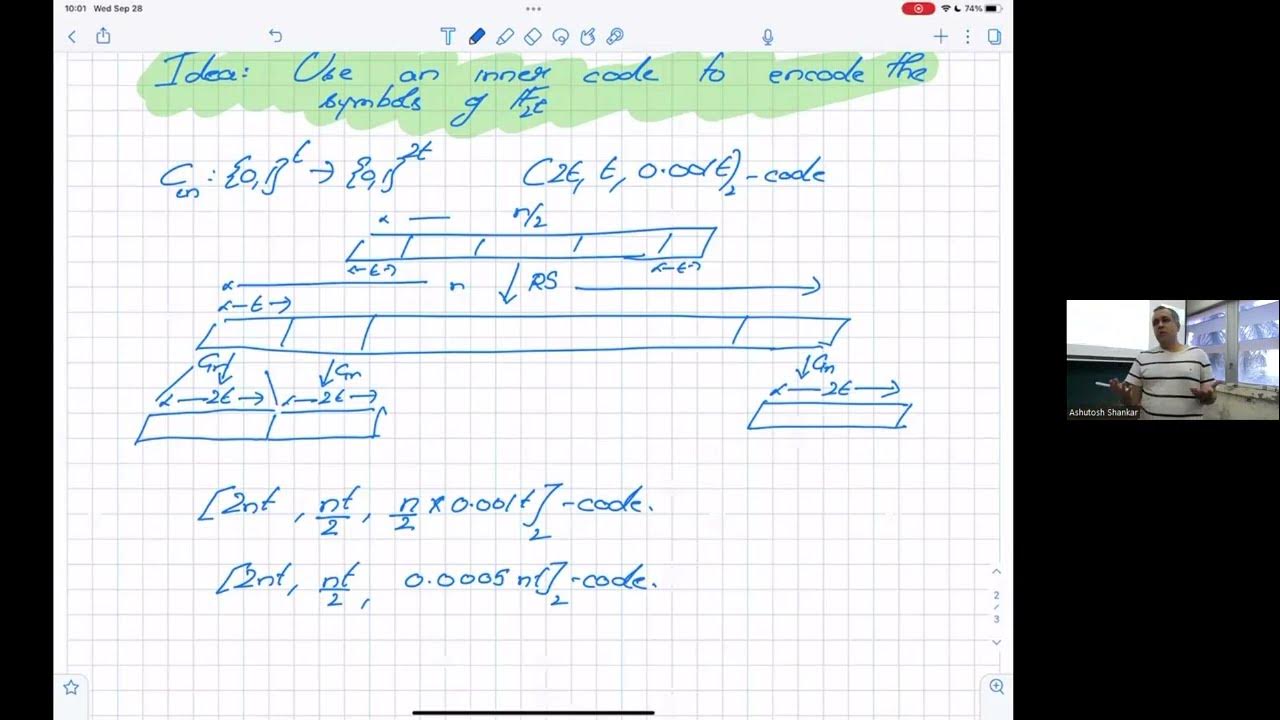 10:01 Wed Sep 28
74%
Idea: Use an inner code to encode the
symbols of F_{2^t}
C_in : {0,1}^t → {0,1}^{2t} (2t, t, 0.001t)_2 - code
n/2
←t→ ←t→
n ↓ RS
←t→
C_in ↓ C_in ↓ C_in
←2t→ ←2t→ ←2t→
[2nt, nt/2, n/2 × 0.001t]_2 - code.
[2nt, nt/2, 0.0005nt]_2 - code.
2
/
3
Ashutosh Shankar